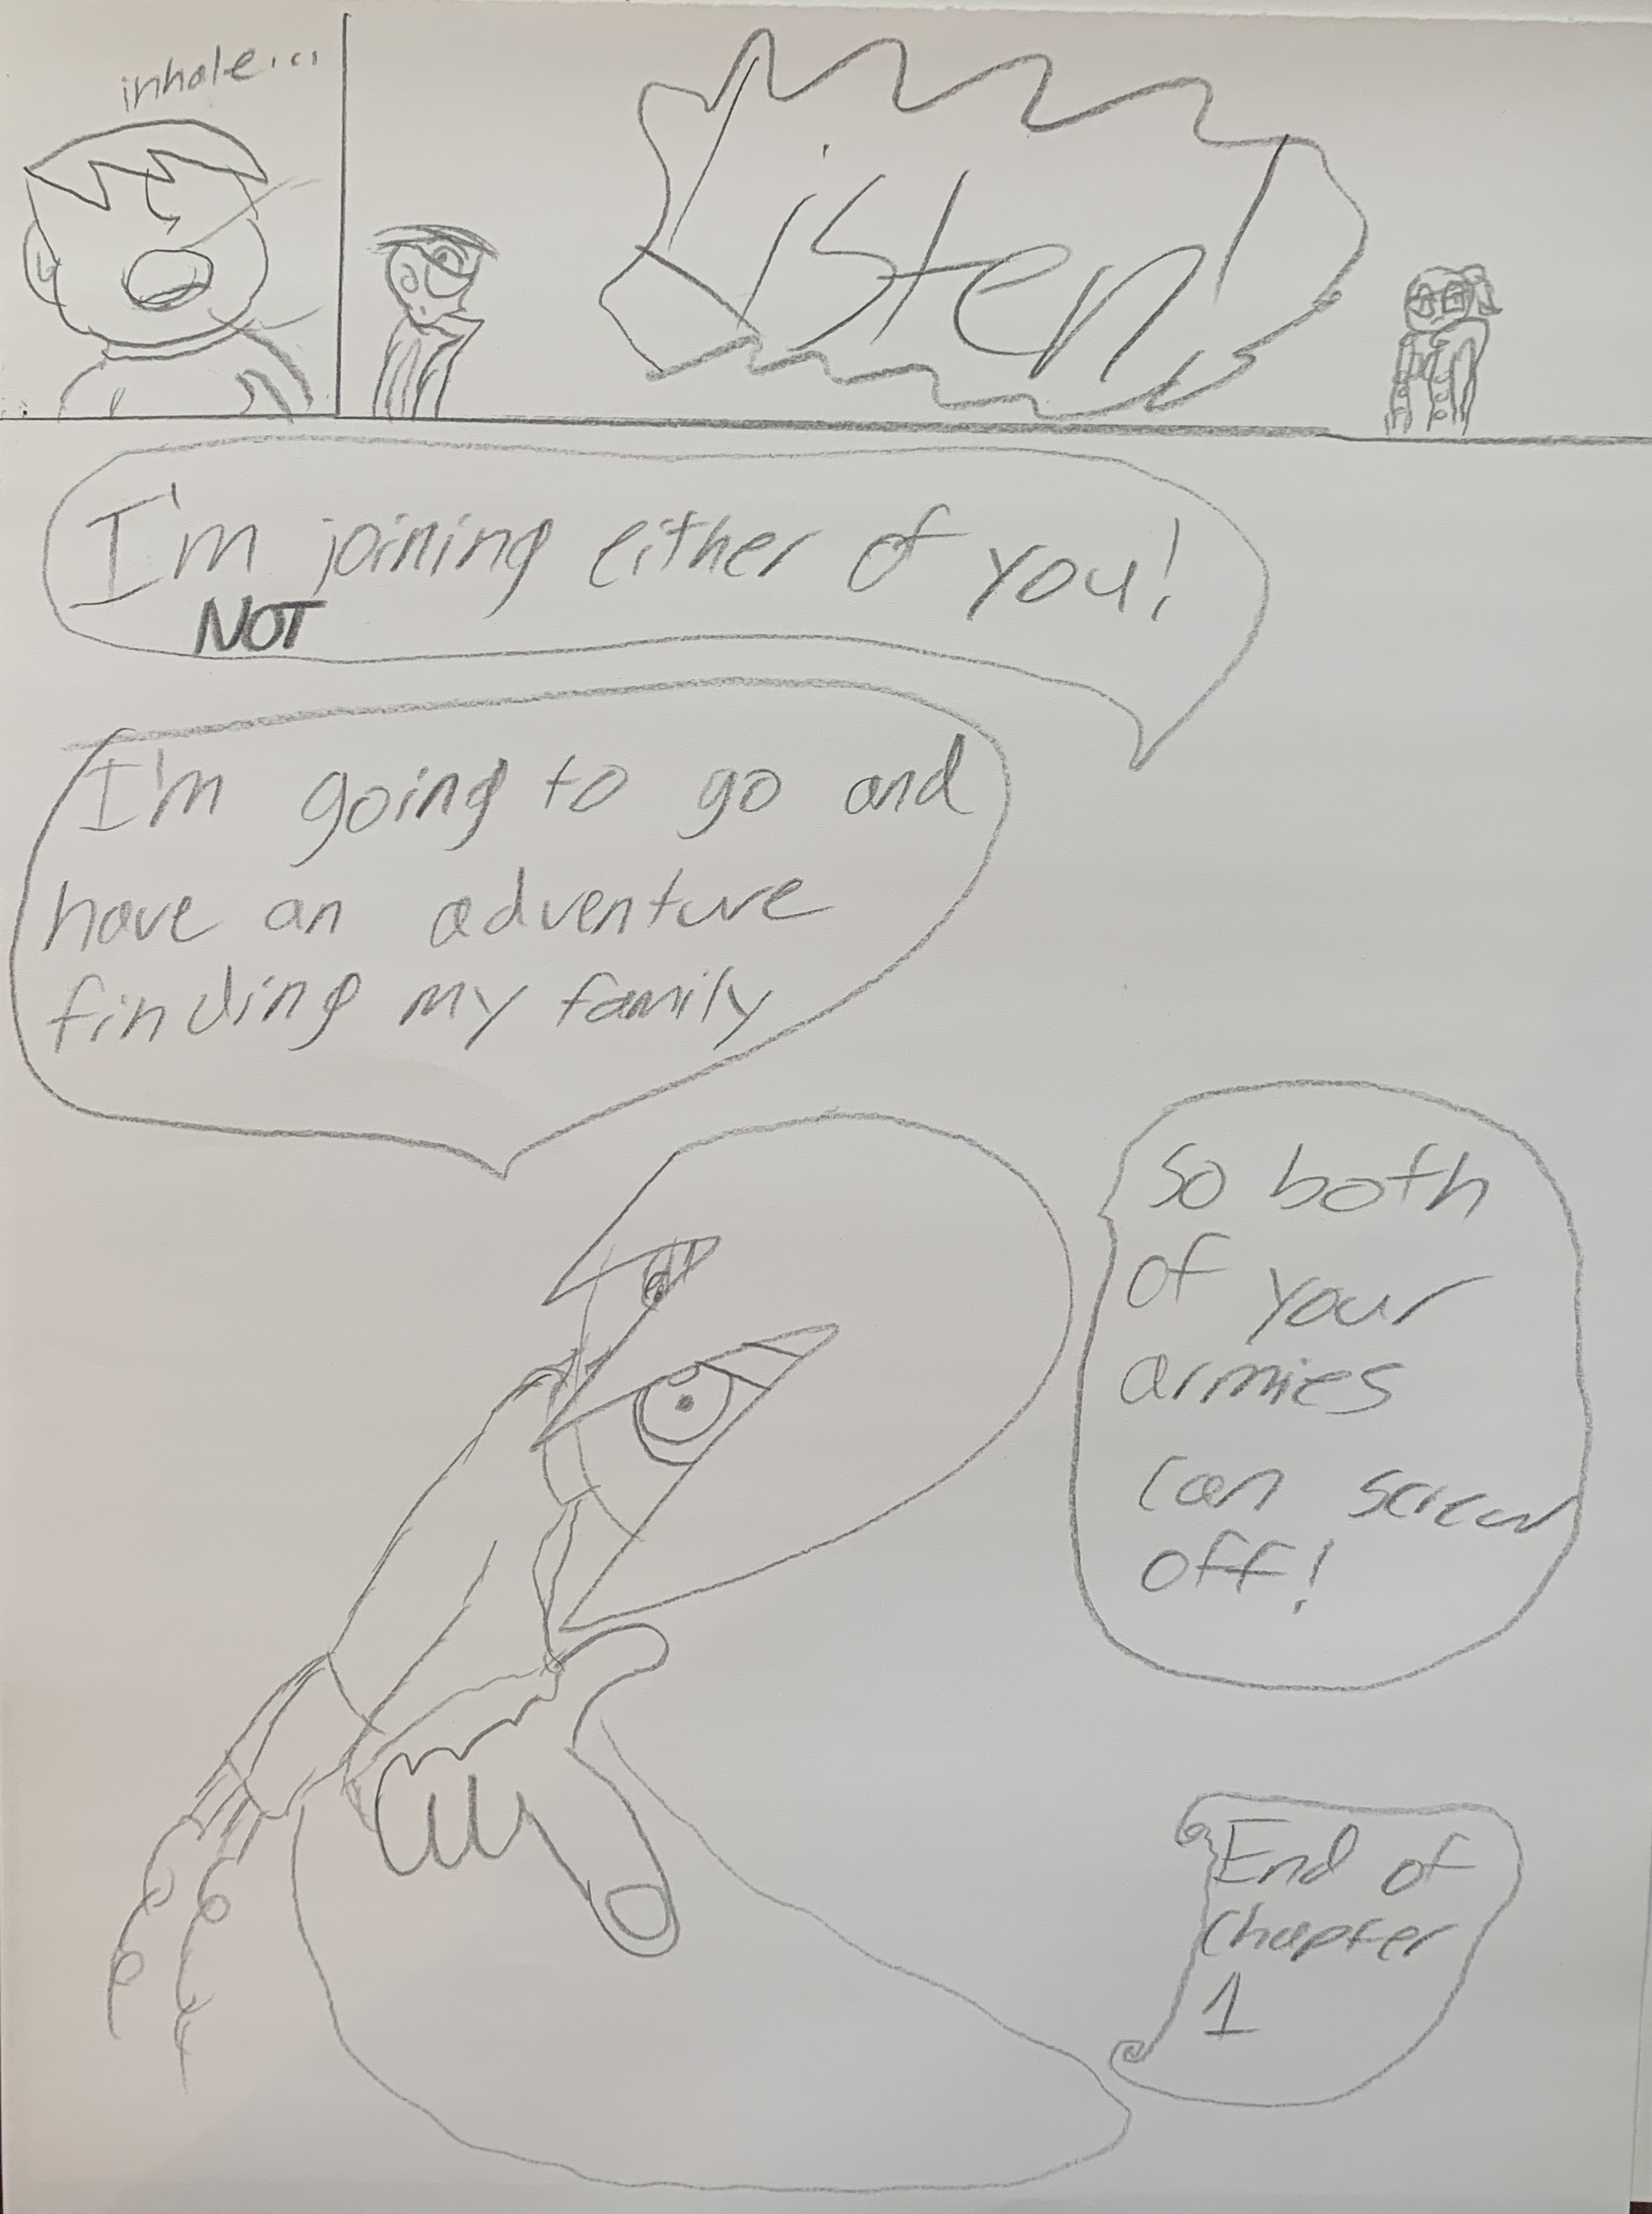 inhale...
Listen!
I'm joining either of you!
NOT
I'm going to go and
have an adventure
finding my family
So both
of your
armies
can screw
off!
End of
chapter
1